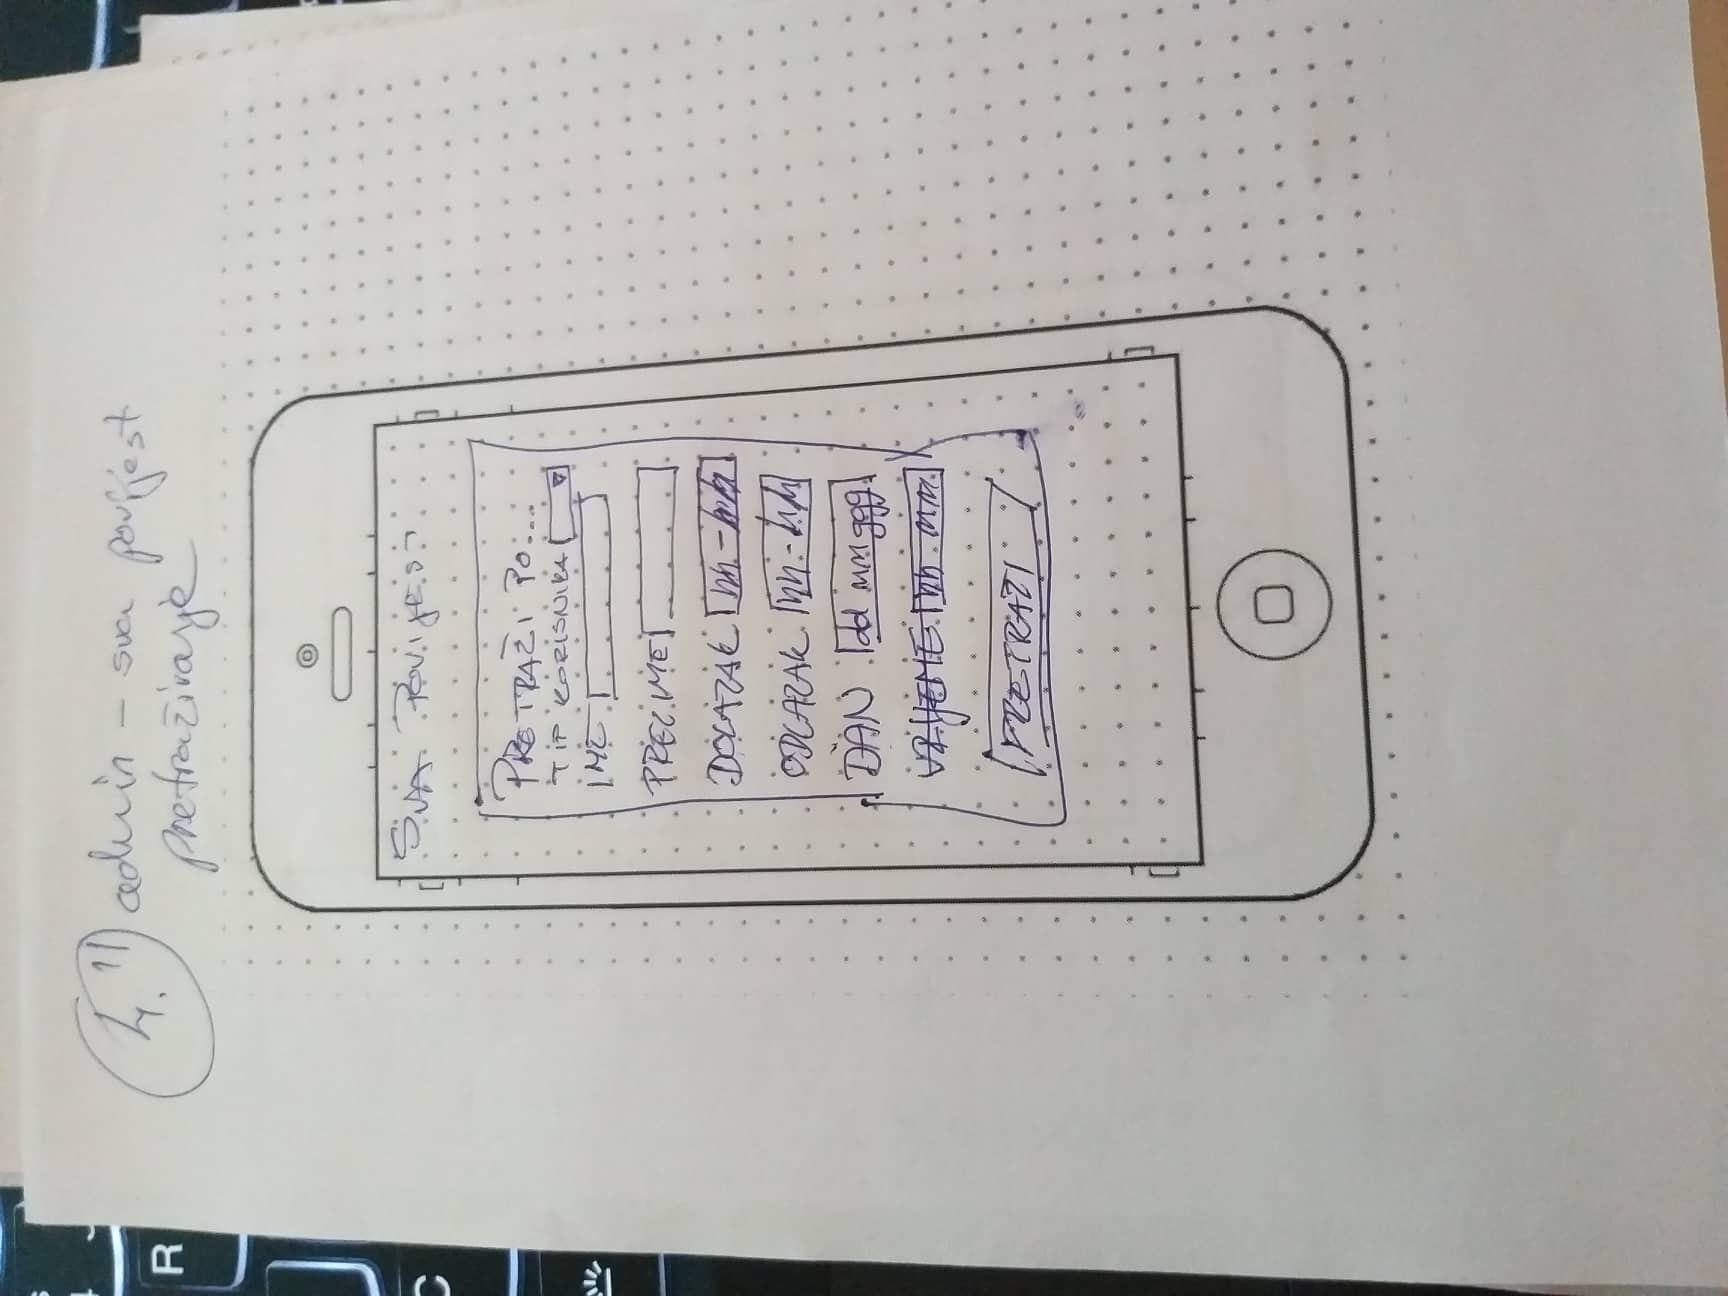 4.1) admin - sva povijest
pretraživanje
SVA POVIJEST
PRETRAŽI PO....
TIP KORISNIKA
IME
PREZIME
DOLAZAK hh-hh
ODLAZAK hh-hh
DAN dd mm gggg
VRIJEME hh mm
PRETRAŽI
R
C